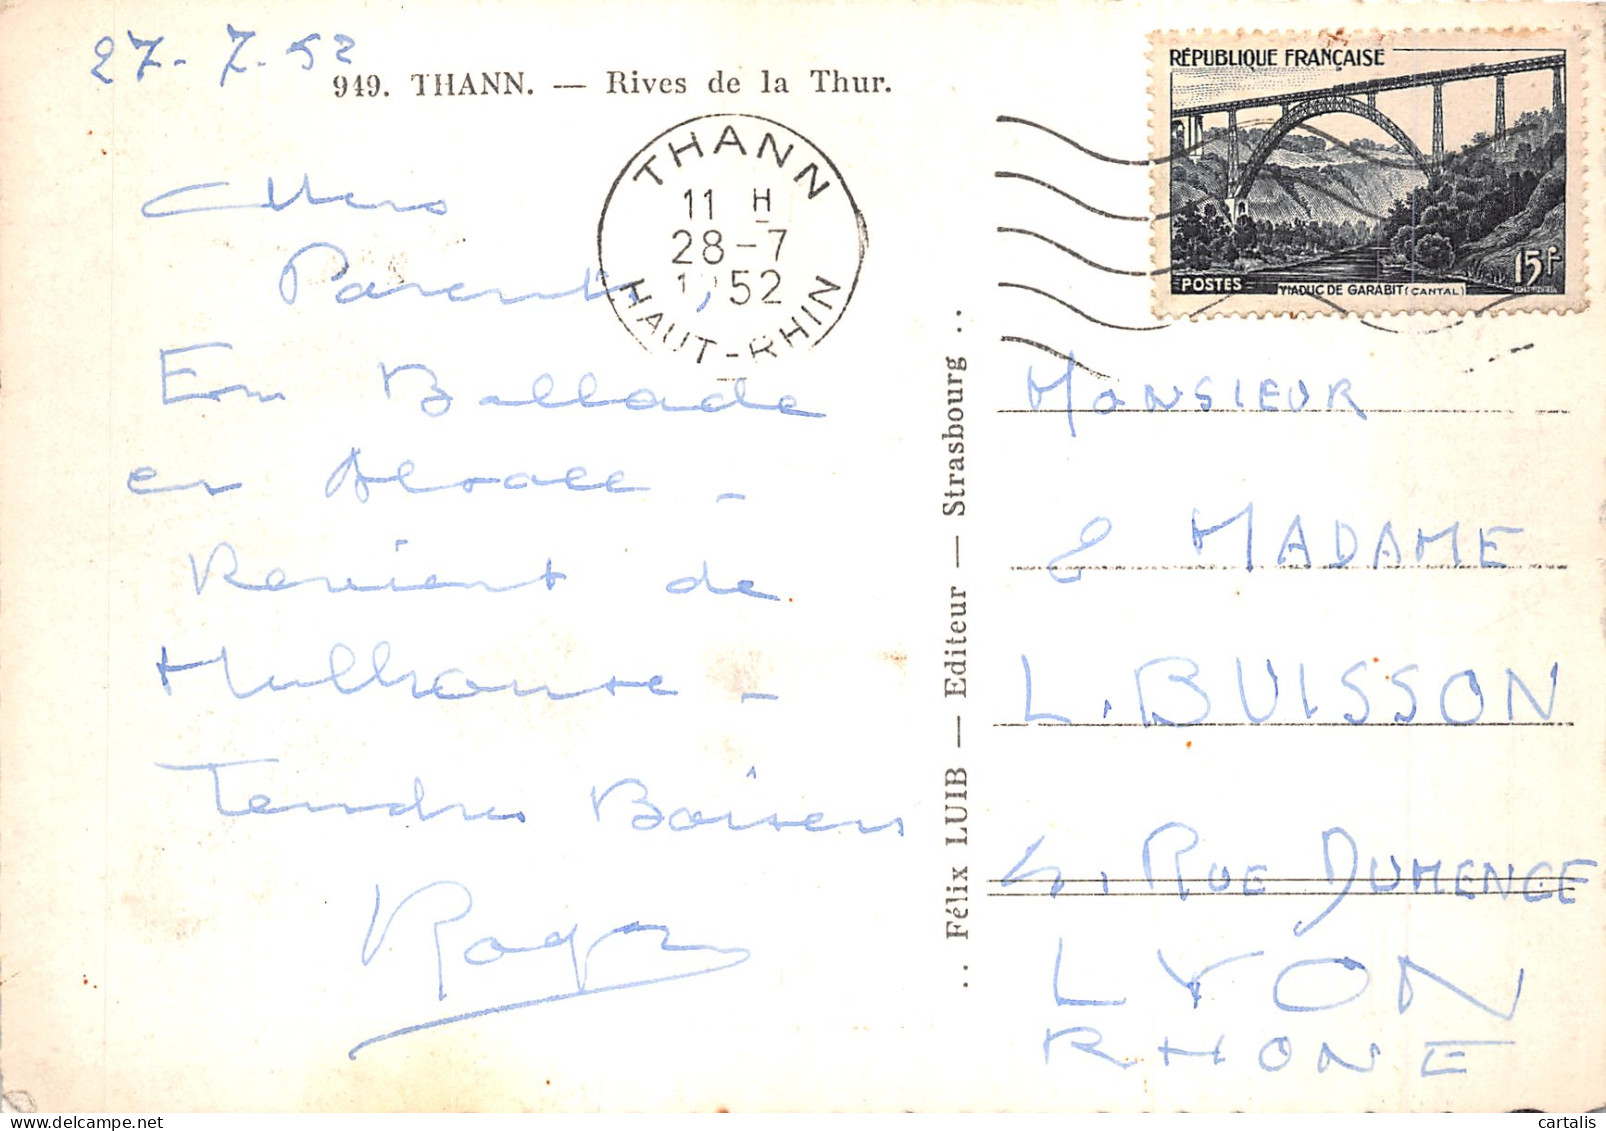 27-7-52
949. THANN. — Rives de la Thur.
THANN
11 H
28-7
1952
HAUT-RHIN
RÉPUBLIQUE FRANÇAISE
15F
POSTES
VIADUC DE GARABIT (CANTAL)
Chers
Parents,
En Ballade
en Alsace -
Revient de
Mulhouse -
Tendres Baisers
Roger
.. Félix LUIB — Editeur — Strasbourg ..
MONSIEUR
& MADAME
L. BUISSON
4, RUE DUMENGE
LYON
RHONE
cartalis